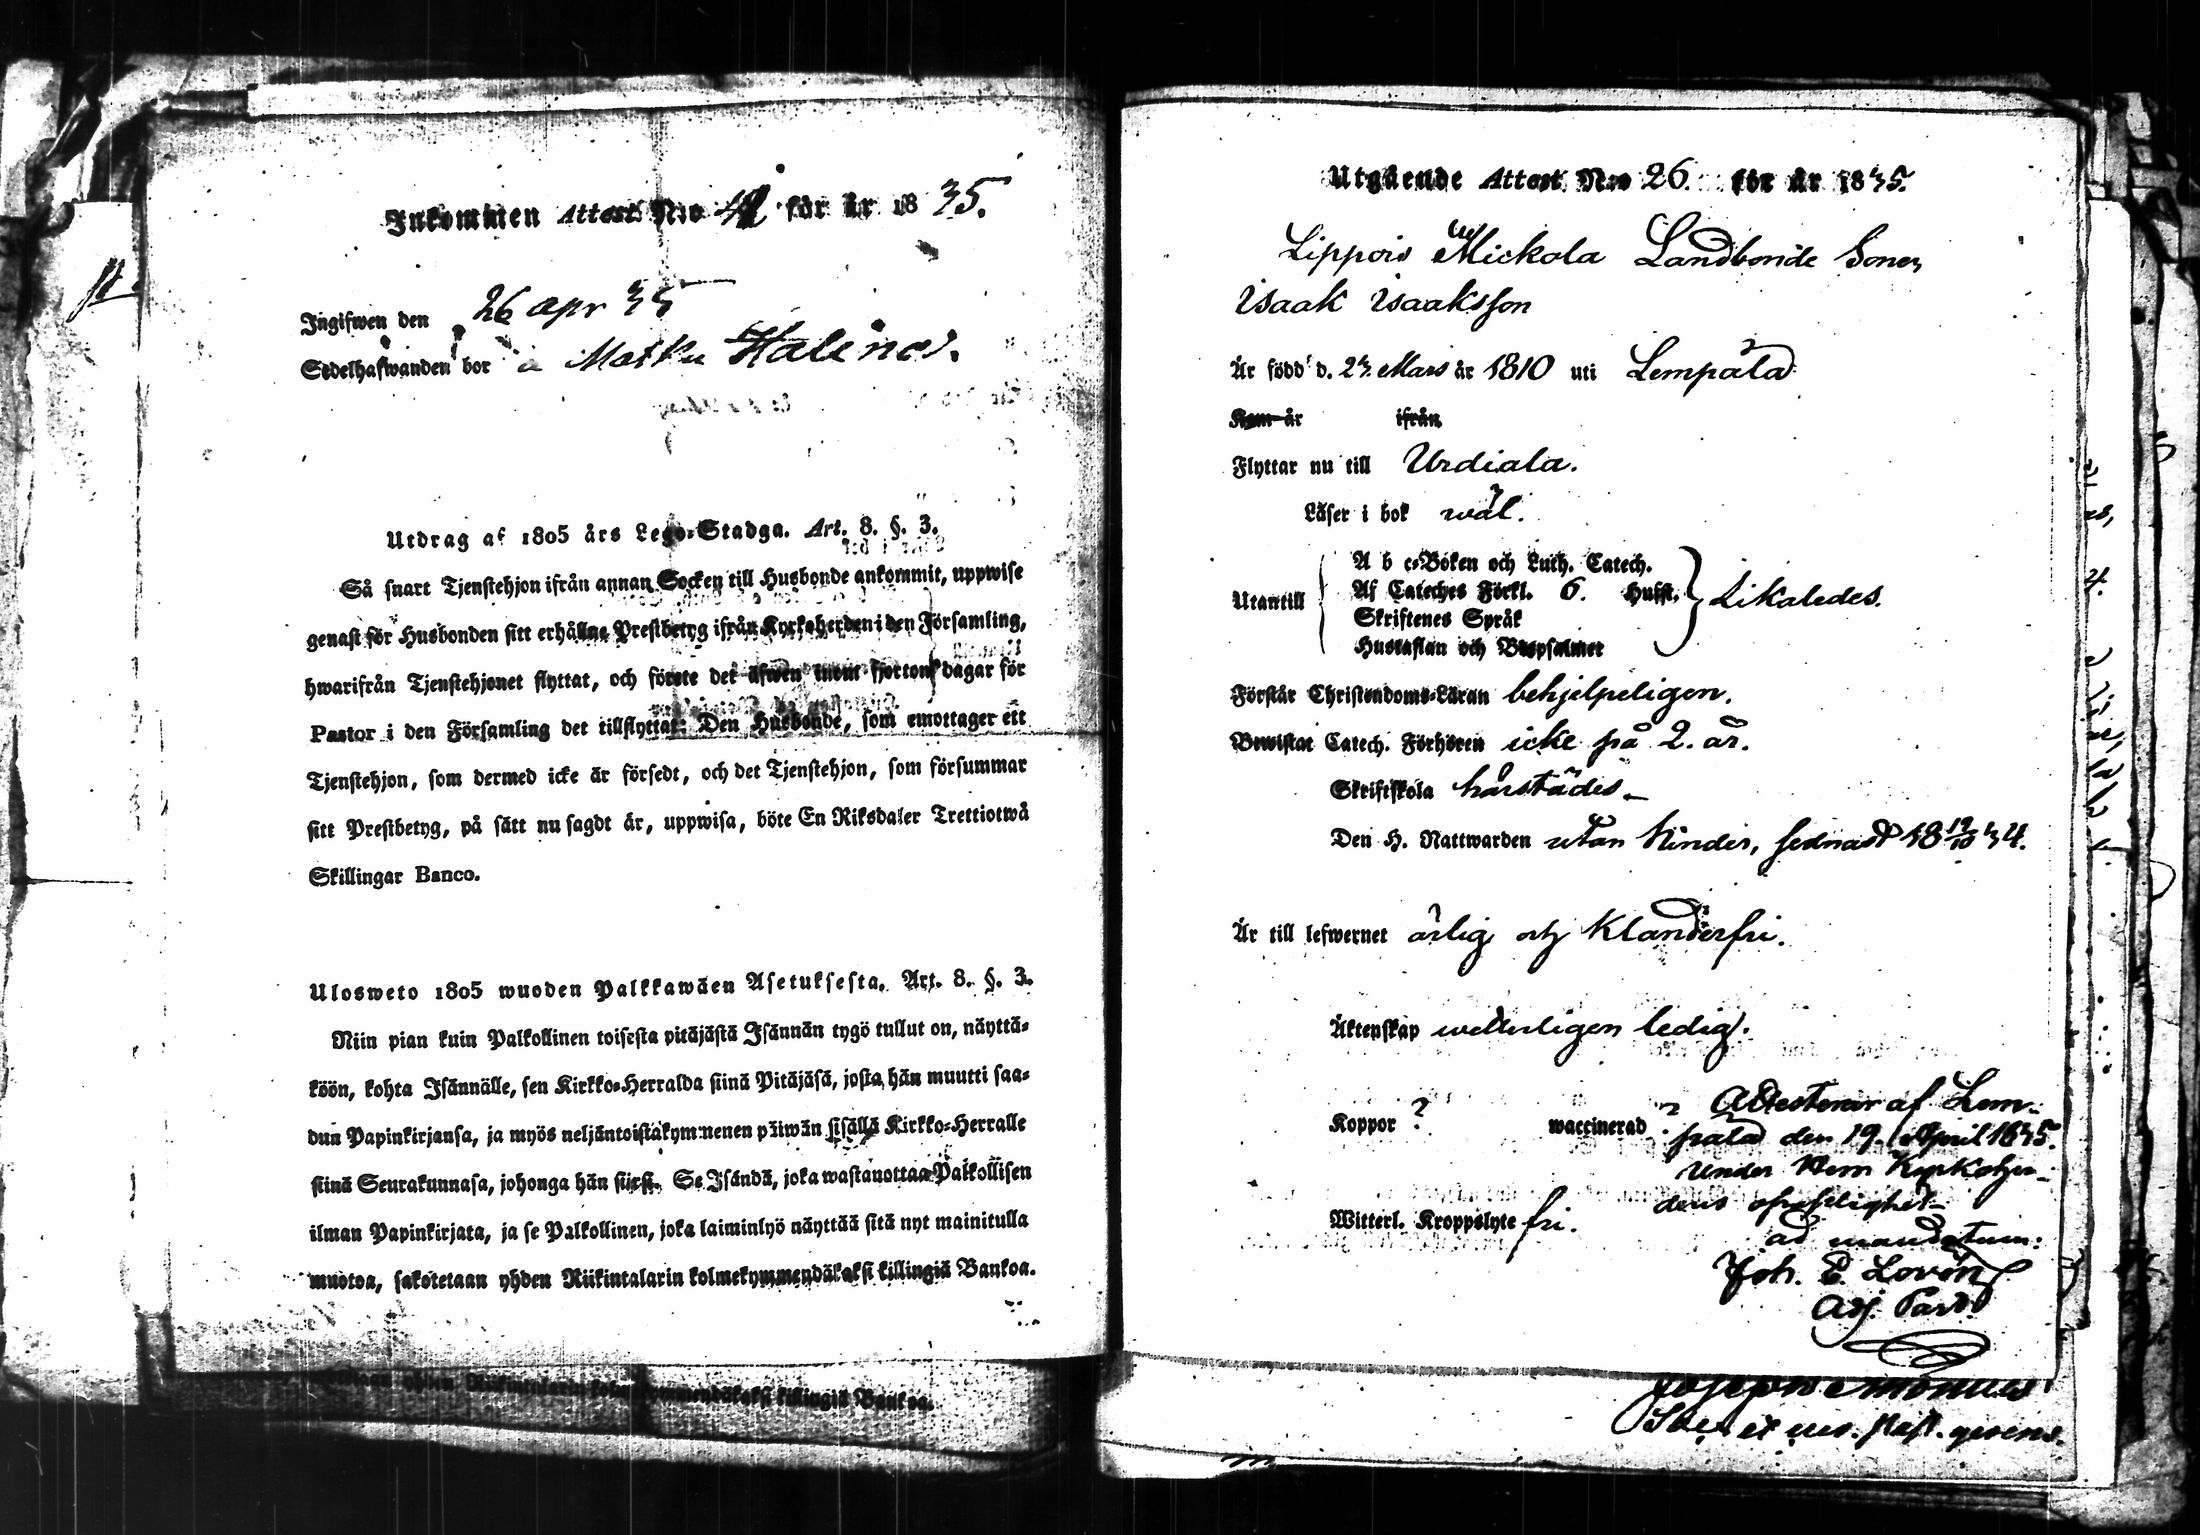 Inkommen Attest N:o 42 för år 1835.
Ingifwen den 26 apr 35
Sedelhafwanden bor
Utdrag af 1805 års Lego-Stadga. Art. 8. §. 3.
Så snart Tjenstehjon ifrån annan Socken till Husbonde ankommit, uppwise
genast för Husbonden sitt erhållna Prestbetyg ifrån Kyrkoherden i den Församling,
hwarifrån Tjenstehjonet flyttat, och förete det äfwen inom fjorton dagar för
Pastor i den Församling det tillflyttat: Den Husbonde, som emottager ett
Tjenstehjon, som dermed icke är försedt, och det Tjenstehjon, som försummar
sitt Prestbetyg, på sätt nu sagdt är, uppwisa, böte En Riksdaler Trettiotwå
Skillingar Banco.
Ulosweto 1805 wuoden Palkkawäen Asetuksesta. Art. 8. §. 3.
Niin pian kuin Palkollinen toisesta pitäjästä Isännän tygö tullut on, näyttä-
köön, kohta Isännälle, sen Kirkko-Herralda siinä Pitäjäsä, josta hän muutti saa-
dun Papinkirjansa, ja myös neljäntoistakymmenen päiwän sisällä Kirkko-Herralle
siinä Seurakunnasa, johonga hän siirsi. Se Isändä, joka wastanottaa Palkollisen
ilman Papinkirjata, ja se Palkollinen, joka laiminlyö näyttää sitä nyt mainitulla
muotoa, sakotetaan yhden Riikintalarin kolmekymmendäkaksi killingiä Bankoa.
killingiä Bankoa.
Utgående Attest N:o 26. för år 1835.
Lippois Mickola Landbonde Sonen
Isaak Isaaksson
Är född d. 23 Mars år 1810 uti Lempälä
Kom år ifrån
Flyttar nu till Urdiala.
Läser i bok wäl.
Utantill
A b c-Boken och Luth. Catech.
Af Cateches Förkl. 6. Hufst.
Skriftenes Språk
Hustaflan och Botpsalmer
Likaledes.
Förstår Christendoms-Läran behjelpeligen.
Bewistat Catech. Förhören icke på 2. år.
Skriftskola härstädes
Den H. Nattwarden utan hinder, sednast 18 19/10 34.
Är till lefwernet ärlig och klanderfri.
Äktenskap wetterligen ledig.
Koppor ? waccinerad ?
Witterl. Kroppslyte fri.
Attesterar af Lem-
pälä den 19. April 1835.
under Herr Kyrkoher-
dens opasslighet
ad mandatum:
Joh. E. Lovén
Adj. Past.